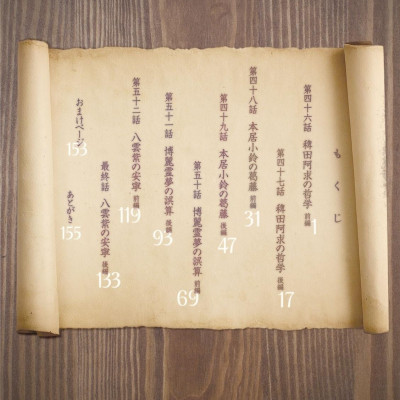 もくじ
第四十六話 稗田阿求の哲学 前編
1
第四十七話 稗田阿求の哲学 後編
17
第四十八話 本居小鈴の葛藤 前編
31
第四十九話 本居小鈴の葛藤 後編
47
第五十話 博麗霊夢の誤算 前編
69
第五十一話 博麗霊夢の誤算 後編
93
第五十二話 八雲紫の安寧 前編
119
最終話 八雲紫の安寧 後編
133
おまけページ
153
あとがき
155